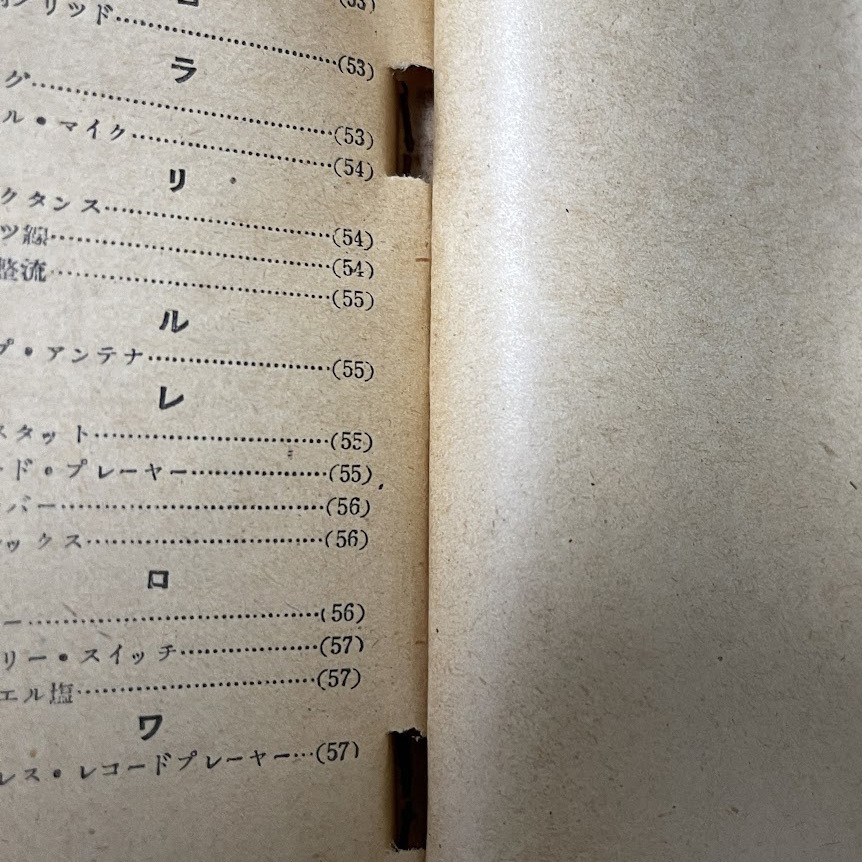 (53)
リッド……(53)
ラ
グ……(53)
ル・マイク……(54)
リ
クタンス……(54)
ツ線……(54)
整流……(55)
ル
プ・アンテナ……(55)
レ
スタット……(55)
ード・プレーヤー……(55)
バー……(56)
ックス……(56)
ロ
ー……(56)
リー・スイッチ……(57)
エル塩……(57)
ワ
レス・レコードプレーヤー…(57)